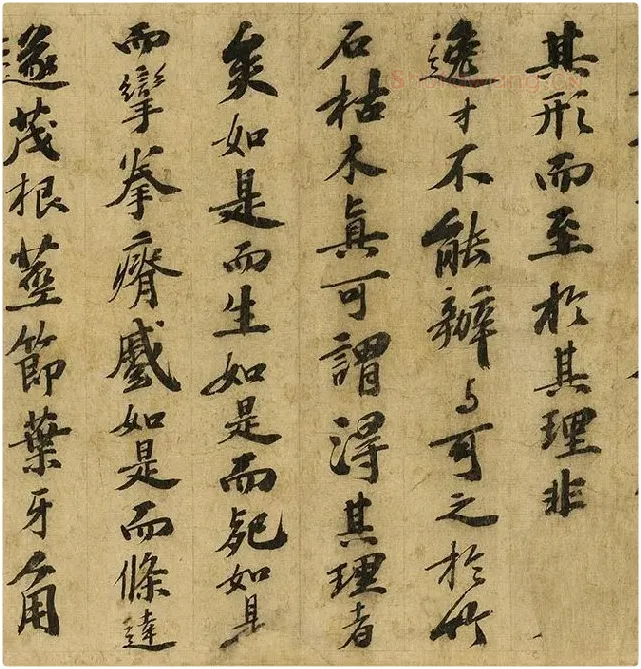 其形而至於其理非
逸才不能辦与可之於竹
石枯木眞可謂得其理者
矣如是而生如是而死如是
而攣拳瘠蹙如是而條達
遂茂根莖節葉牙角